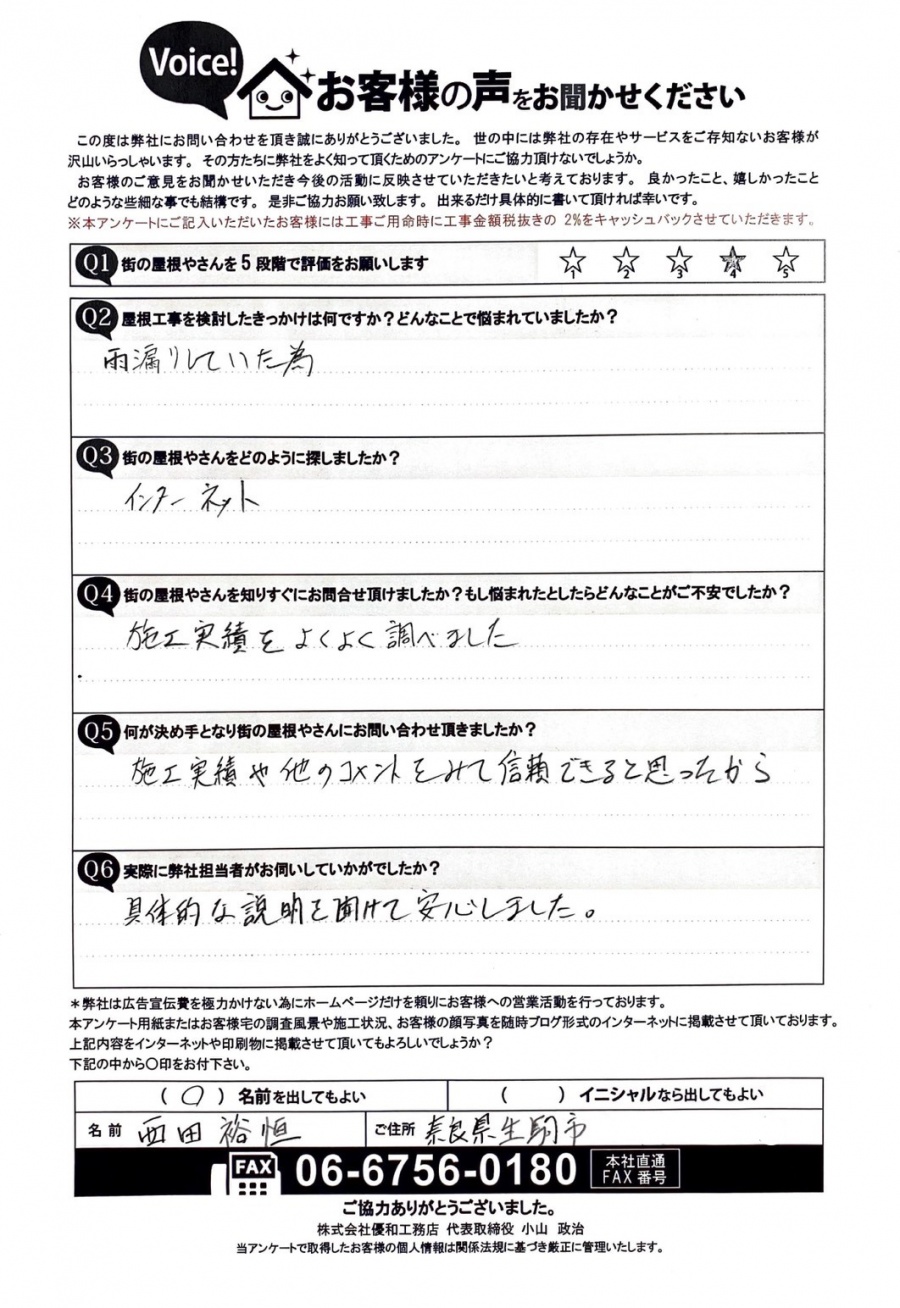 Voice! お客様の声をお聞かせください
この度は弊社にお問い合わせを頂き誠にありがとうございました。 世の中には弊社の存在やサービスをご存知ないお客様が
沢山いらっしゃいます。 その方たちに弊社をよく知って頂くためのアンケートにご協力頂けないでしょうか。
お客様のご意見をお聞かせいただき今後の活動に反映させていただきたいと考えております。 良かったこと、嬉しかったこと
どのような些細な事でも結構です。 是非ご協力お願い致します。 出来るだけ具体的に書いて頂ければ幸いです。
※本アンケートにご記入いただいたお客様には工事ご用命時に工事金額税抜きの 2%をキャッシュバックさせていただきます。
Q1 街の屋根やさんを5段階で評価をお願いします 1 2 3 4 5
Q2 屋根工事を検討したきっかけは何ですか?どんなことで悩まれていましたか?
雨漏りしていた為
Q3 街の屋根やさんをどのように探しましたか?
インターネット
Q4 街の屋根やさんを知りすぐにお問合せ頂けましたか?もし悩まれたとしたらどんなことがご不安でしたか?
施工実績をよくよく調べました
Q5 何が決め手となり街の屋根やさんにお問い合わせ頂きましたか?
施工実績や他のコメントをみて信頼できると思ったから
Q6 実際に弊社担当者がお伺いしていかがでしたか?
具体的な説明を聞けて安心しました。
*弊社は広告宣伝費を極力かけない為にホームページだけを頼りにお客様への営業活動を行っております。
本アンケート用紙またはお客様宅の調査風景や施工状況、お客様の顔写真を随時ブログ形式のインターネットに掲載させて頂いております。
上記内容をインターネットや印刷物に掲載させて頂いてもよろしいでしょうか?
下記の中から〇印をお付下さい。
(〇)名前を出してもよい ( )イニシャルなら出してもよい
名前 西田 裕恒 ご住所 奈良県生駒市
FAX 06-6756-0180 本社直通
FAX番号
ご協力ありがとうございました。
株式会社優和工務店 代表取締役 小山 政治
当アンケートで取得したお客様の個人情報は関係法規に基づき厳正に管理いたします。